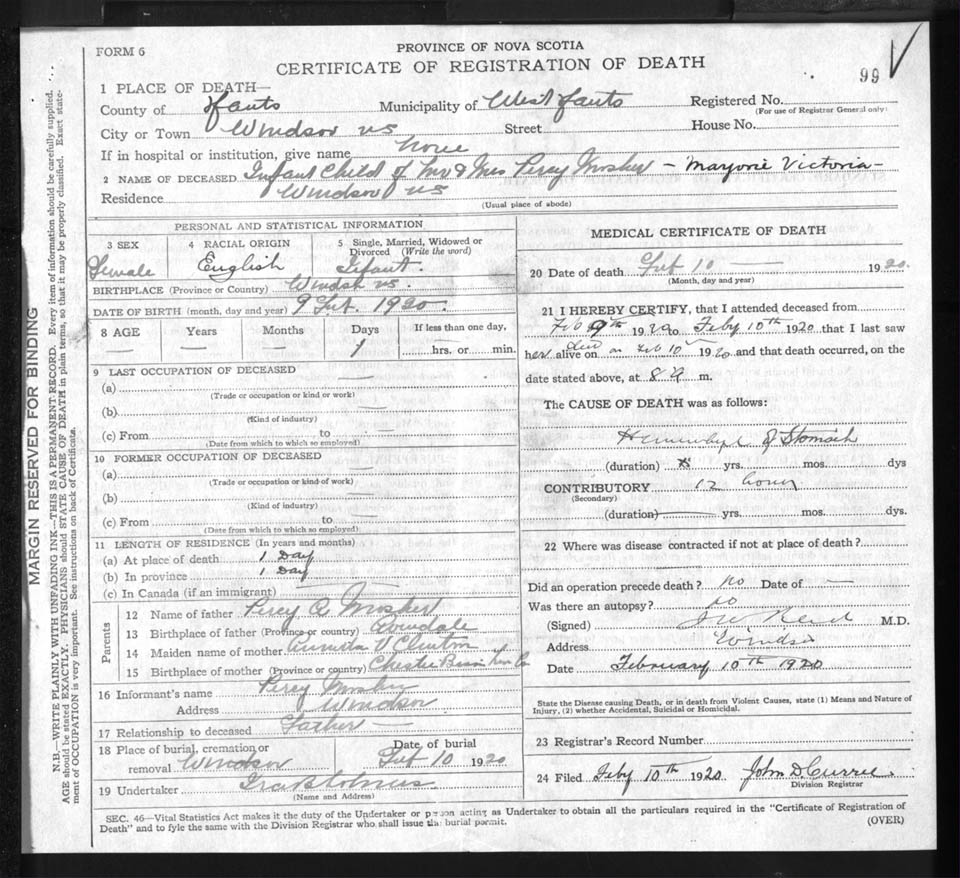 FORM 6
PROVINCE OF NOVA SCOTIA
CERTIFICATE OF REGISTRATION OF DEATH
99
1 PLACE OF DEATH—
County of Hants Municipality of West Hants Registered No.
(For use of Registrar General only)
City or Town Windsor NS Street House No.
If in hospital or institution, give name none
2 NAME OF DECEASED Infant Child of Mr & Mrs Percy Mosher — Marjorie Victoria —
Residence Windsor NS
(Usual place of abode)
PERSONAL AND STATISTICAL INFORMATION
3 SEX Female
4 RACIAL ORIGIN English
5 Single, Married, Widowed or Divorced (Write the word) Infant.
BIRTHPLACE (Province or Country) Windsor NS.
DATE OF BIRTH (month, day and year) 9 Feb. 1920.
8 AGE Years Months Days If less than one day,
— — 1 hrs. or min.
9 LAST OCCUPATION OF DECEASED
(a)
(Trade or occupation or kind or work)
(b)
(Kind of industry)
(c) From to
(Date from which to which so employed)
10 FORMER OCCUPATION OF DECEASED
(a)
(Trade or occupation or kind of work)
(b)
(Kind of industry)
(c) From to
(Date from which to which so employed)
11 LENGTH OF RESIDENCE (In years and months)
(a) At place of death 1 Day
(b) In province 1 Day
(c) In Canada (if an immigrant)
Parents
12 Name of father Percy A Mosher
13 Birthplace of father (Province or country) Avondale
14 Maiden name of mother V
15 Birthplace of mother (Province or country) Chester Basin Lun Co
16 Informant's name Percy Mosher
Address Windsor
17 Relationship to deceased Father —
18 Place of burial, cremation or removal Windsor
Date of burial Feb 10 1920
19 Undertaker
(Name and Address)
MEDICAL CERTIFICATE OF DEATH
20 Date of death Feb 10 — 1920.
(Month, day and year)
21 I HEREBY CERTIFY, that I attended deceased from
Feb 9th 1920 to Feby 10th 1920 that I last saw
her alive on Feb 10 1920 and that death occurred, on the
date stated above, at 8 a m.
The CAUSE OF DEATH was as follows:
Hemorrhage of Stomach
(duration) yrs. mos. dys
CONTRIBUTORY 12 hours
(Secondary)
(duration) yrs. mos. dys.
22 Where was disease contracted if not at place of death?
Did an operation precede death? No Date of —
Was there an autopsy? No
(Signed) J W Reid M.D.
Address Windsor
Date February 10th 1920
State the Disease causing Death, or in death from Violent Causes, state (1) Means and Nature of
Injury, (2) whether Accidental, Suicidal or Homicidal.
23 Registrar's Record Number
24 Filed Feby 10th 1920 John D. Currie
Division Registrar
SEC. 46—Vital Statistics Act makes it the duty of the Undertaker or person acting as Undertaker to obtain all the particulars required in the "Certificate of Registration of
Death" and to fyle the same with the Division Registrar who shall issue the burial permit.
(OVER)
MARGIN RESERVED FOR BINDING
N.B.—WRITE PLAINLY WITH UNFADING INK—THIS IS A PERMANENT RECORD. Every item of information should be carefully supplied.
AGE should be stated EXACTLY. PHYSICIANS should STATE CAUSE OF DEATH in plain terms, so that it may be properly classified. Exact state-
ment of OCCUPATION is very important. See instructions on back of Certificate.